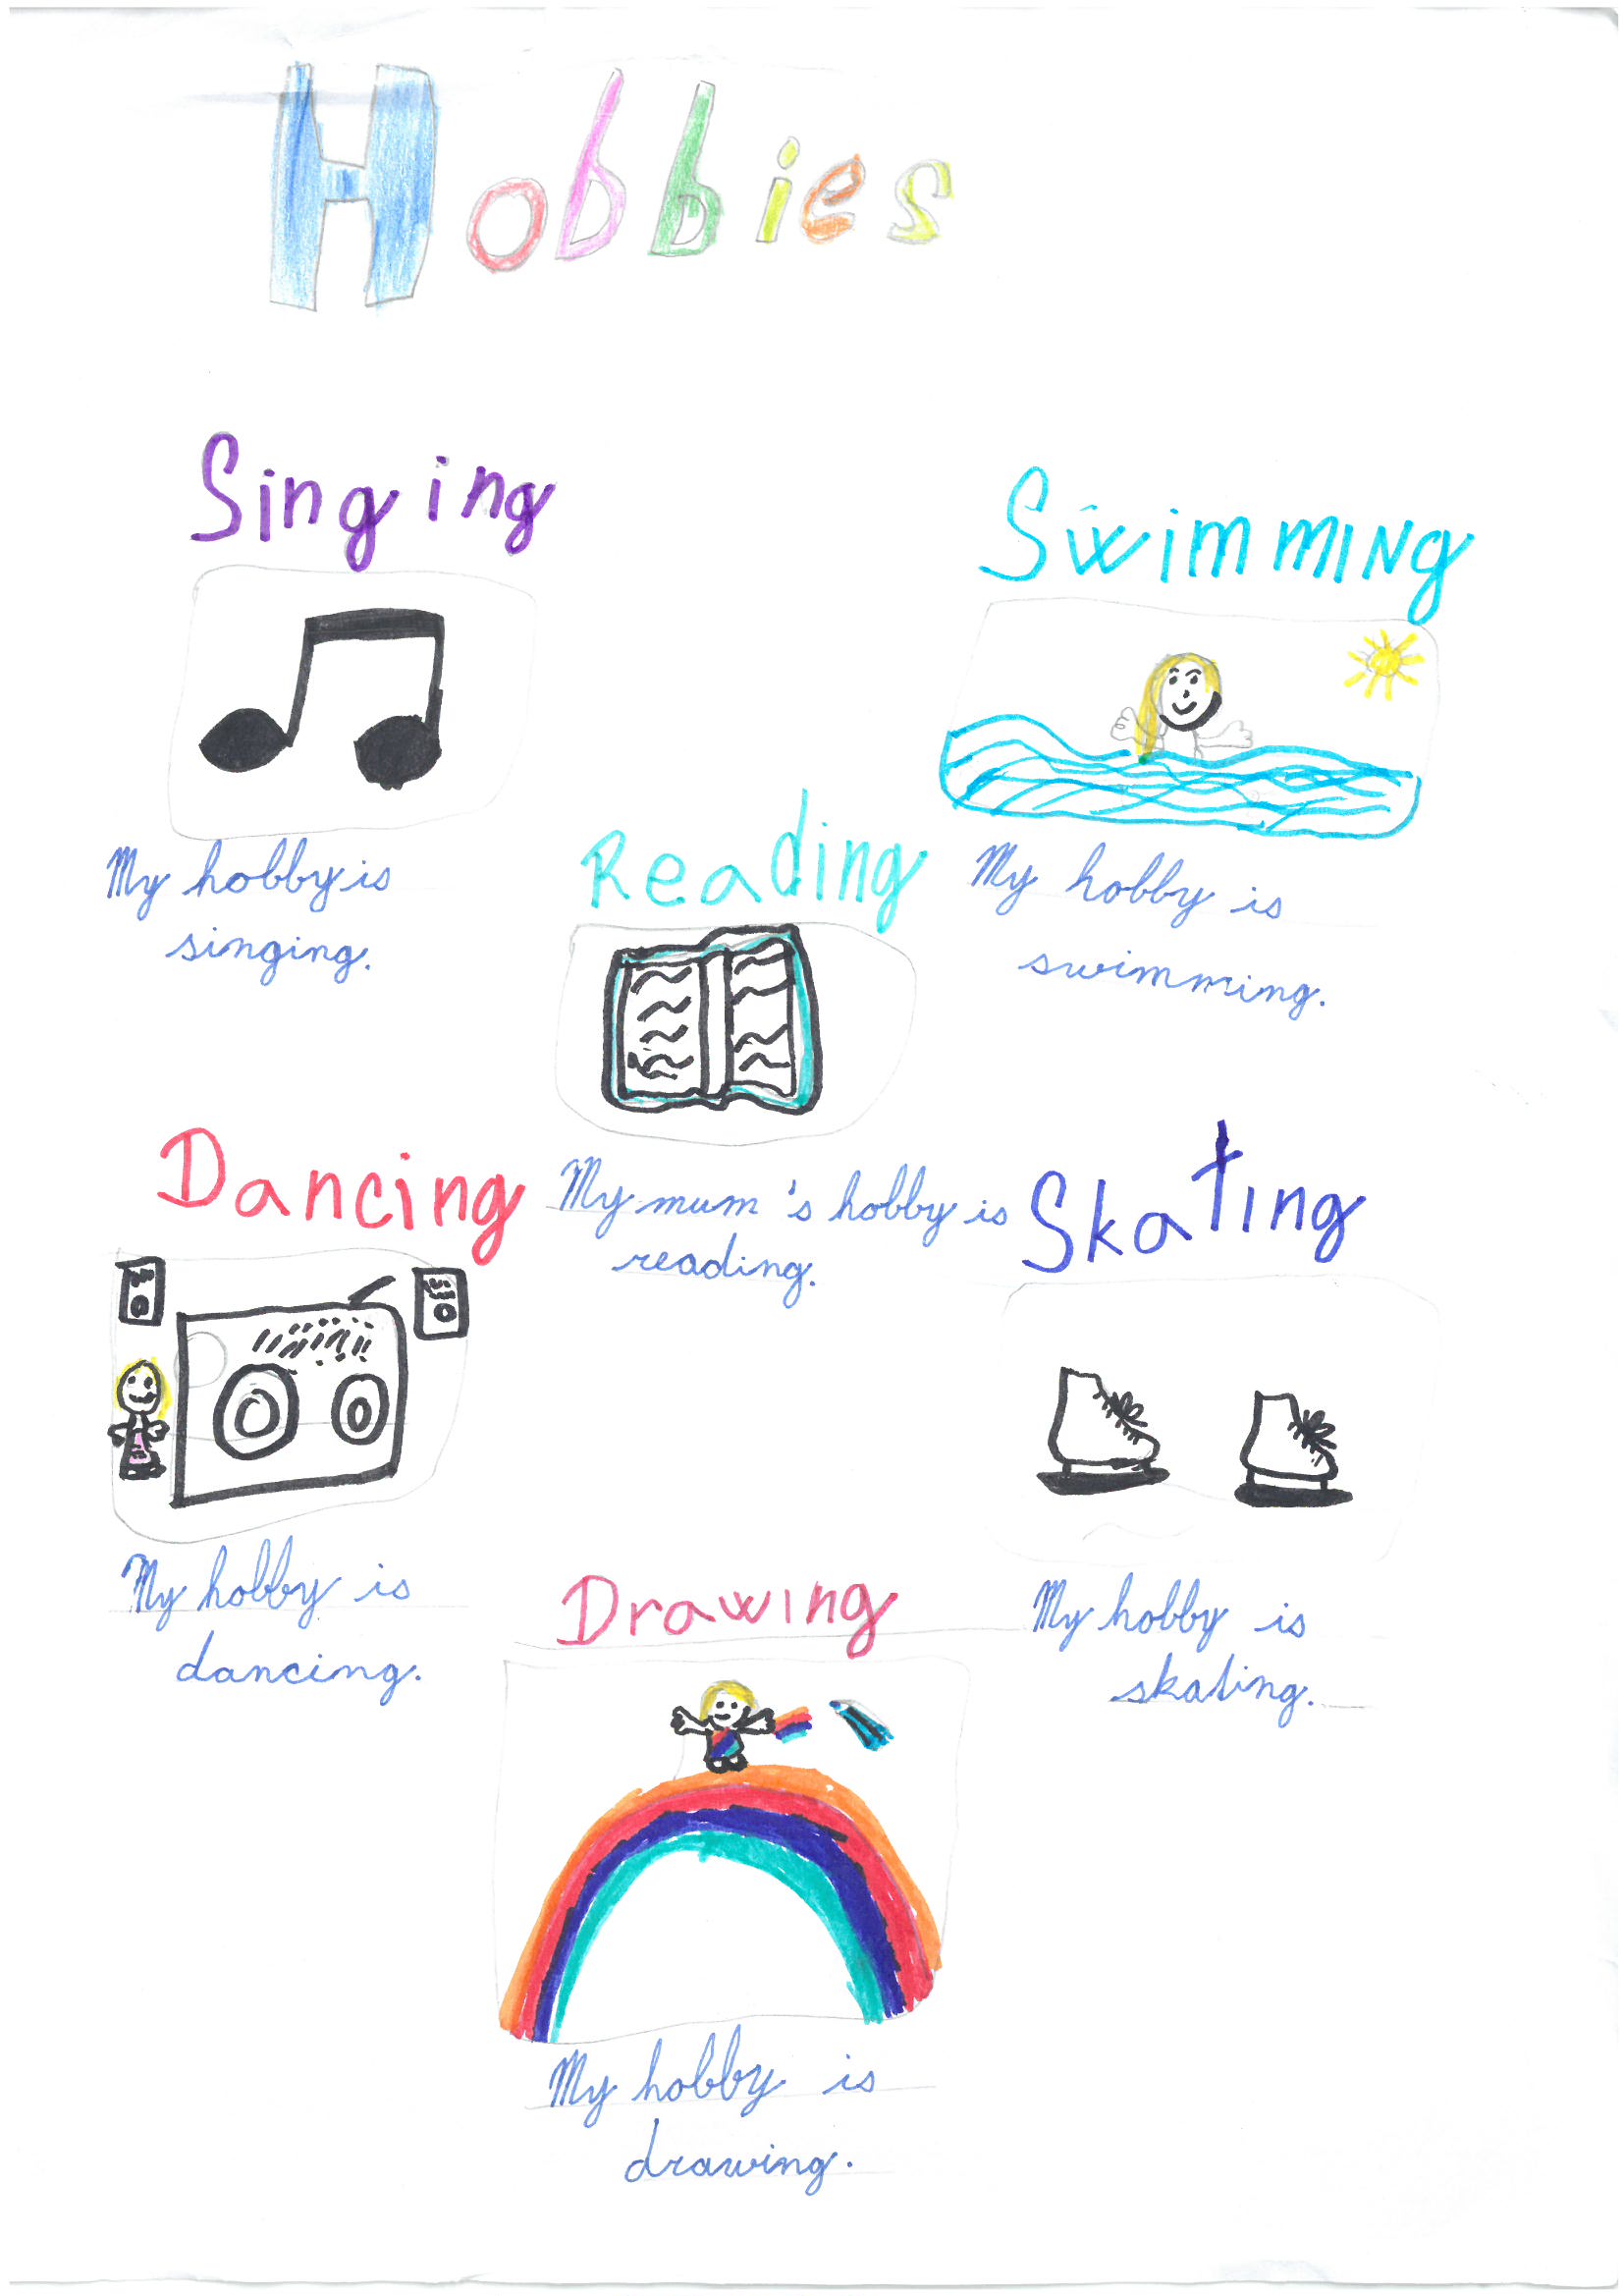 Hobbies
Singing
My hobby is
singing.
Swimming
My hobby is
swimming.
Reading
My mum's hobby is
reading.
Dancing
My hobby is
dancing.
Skating
My hobby is
skating.
Drawing
My hobby is
drawing.